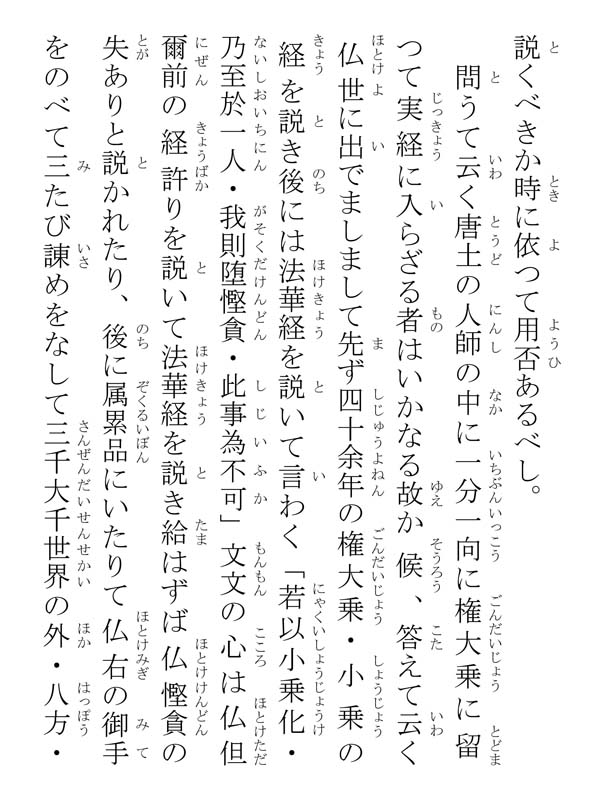 説くべきか時に依つて用否あるべし。
問うて云く唐土の人師の中に一分一向に権大乗に留
つて実経に入らざる者はいかなる故か候、答えて云く
仏世に出でましまして先ず四十余年の権大乗・小乗の
経を説き後には法華経を説いて言わく「若以小乗化・
乃至於一人・我則堕慳貪・此事為不可」文文の心は仏但
爾前の経許りを説いて法華経を説き給はずば仏慳貪の
失ありと説かれたり、後に属累品にいたりて仏右の御手
をのべて三たび諌めをなして三千大千世界の外・八方・